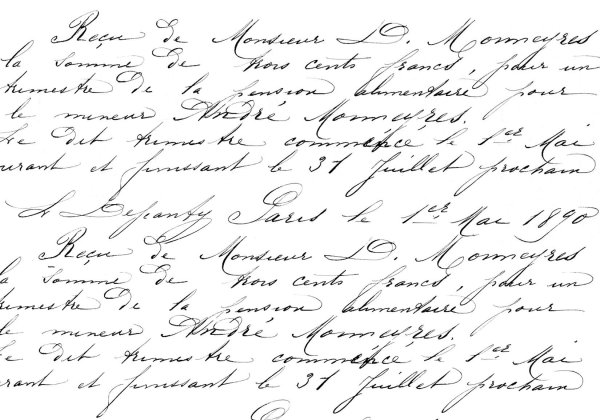 Reçu de Monsieur D. Monneyres
la somme de trois cents francs, pour un
trimestre de la pension alimentaire pour
le mineur André Monneyres.
Le dit trimestre commencé le 1er Mai
urant et finissant le 31 Juillet prochain
Paris le 1er Mai 1890
Reçu de Monsieur D. Monneyres
la somme de trois cents francs, pour un
trimestre de la pension alimentaire pour
le mineur André Monneyres.
Le dit trimestre commencé le 1er Mai
urant et finissant le 31 Juillet prochain